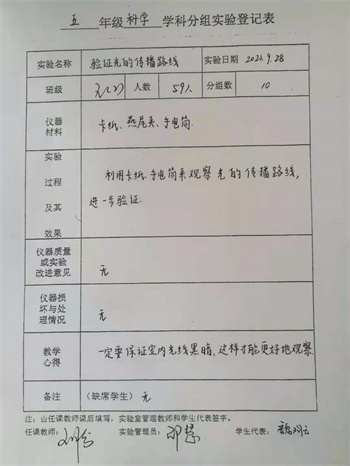 五 年级 科学 学科分组实验登记表
实验名称 验证光的传播路线 实验日期 2021.9.28
班级 五(2) 人数 59人 分组数 10
仪器材料 卡纸、燕尾夹、手电筒
实验过程及其效果 利用卡纸、手电筒来观察光的传播路线,
进一步验证.
仪器质量或实验改进意见 无
仪器损坏与处理情况 无
教学心得 一定要保证室内光线黑暗,这样才能更好地观察
备注 (缺席学生) 无
注:由任课教师课后填写,实验室管理教师和学生代表签字。
任课教师: 实验管理员: 学生代表: